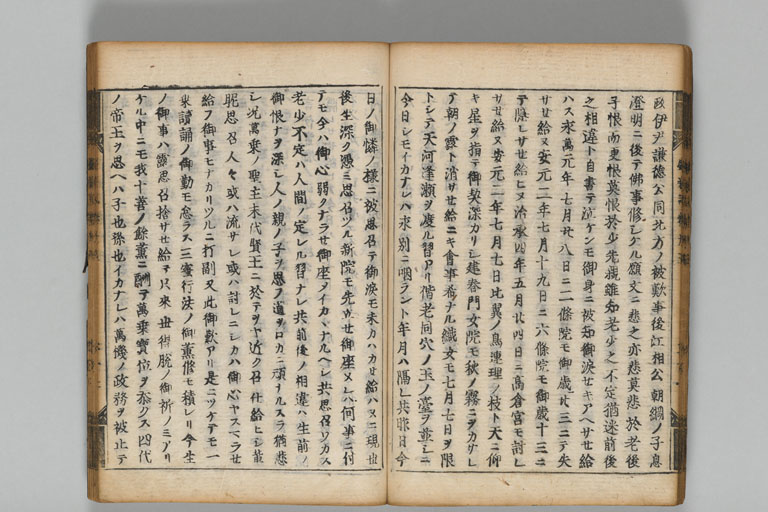 政伊尹謙徳公同北方ノ被歎事後江相公朝綱ノ子息
澄明ニ後テ佛事修シケル願文ニ悲之亦悲莫悲於老後
子恨而更恨莫恨於少先親雖知老少之不定猶迷前後
之相違ト自書テ泣ケンモ御身ニ被知御涙セキアヘサセ給
ハス永萬元年七月廿八日ニ二條院モ御歳廿三ニテ失
サセ給ヌ安元二年七月十九日ニ六條院モ御歳十三ニ
テ隠レサセ給ヒヌ治承四年五月廿四日ニ高倉宮モ討レ
サセ給ヌ安元二年七月七日比翼ノ鳥連理ノ枝ト天ニ仰
キ星ヲ指テ御契深カリシ建春門女院モ秋ノ霧ニヲカサレ
テ朝ノ露ト消サセ給ニキ會事希ナル織女モ七月七日ヲ限
トシテ天河逢瀬ヲ度ル習アリ偕老同穴ノ玉ノ臺ヲ並シニ
今日シモイカナレハ永別ニ咽ラント年月ハ隔レ共昨日今
日ノ御憐ノ様ニ被思召テ御涙モ未カハカセ給ハヌニ現世
後生深ク憑ミ思召ツル新院モ先立セ御座メレハ何事ニ付
テモ今ハ御心弱クナラセ御座タイカヽナルヘシ共思召ワカス
老少不定ハ人間ノ定レル習ナレ共前後ノ相違ハ生前ノ
御恨ナヲ深シ人ノ親ノ子ヲ思フ道ヲロカニ頑ナルスラ猶悲
シ况萬乗ノ聖主末代賢王ニ於テヲヤ近ク召仕給ヒシ輩
昵思召人々或ハ流サレ或ハ討レニシカハ御心ヤスヘラセ
給フ御事モナカリツルニ打副又此御歎アリ是ニツケテモ一
乗讀誦ノ御勤モ怠ラス三密行法ノ御薫修モ積レリ今生
ノ御事ハ思召捨サセ給テ只來世得脱ノ御祈ノミアリ
ケル中ニモ我十善ノ餘薫ニ酬テ萬乗寳位ヲ忝クス四代
ノ帝王ヲ思ヘハ子也孫也イカナレハ萬機ノ政務ヲ被止テ